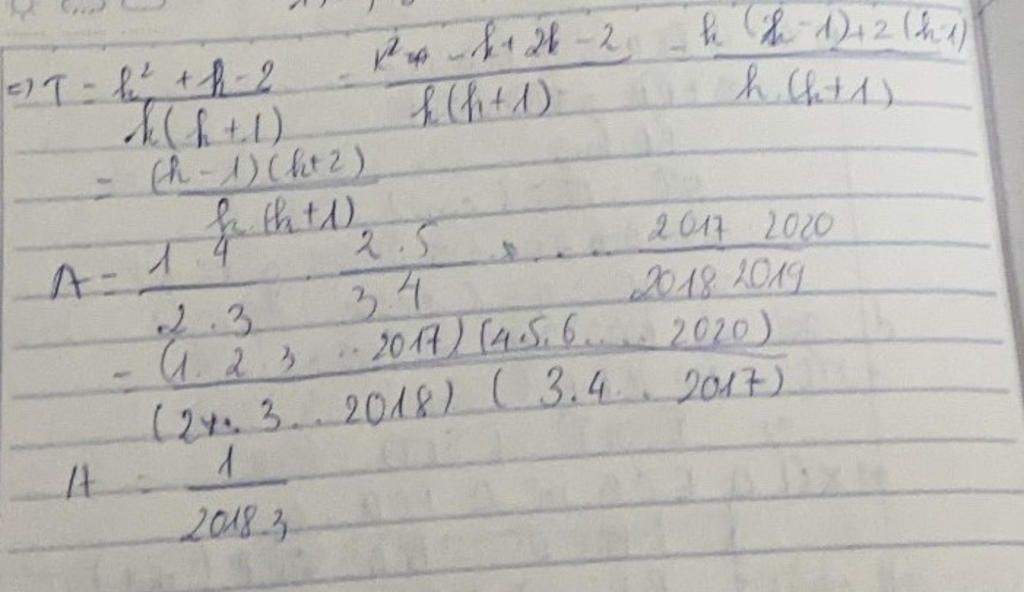 => T = k² + k - 2 / k(k + 1) = k² - k + 2k - 2 / k(k + 1) = k (k - 1) + 2 (k - 1) / k . (k + 1)
= (k - 1) (k + 2) / k . (k + 1)
A = 1 . 4 / 2 . 3 . 2 . 5 / 3 . 4 . .... 2017 2020 / 2018 2019
= (1 . 2 . 3 ... 2017) (4.5.6 .... 2020) / (2 . 3 .. 2018) ( 3.4 .. 2017)
A = 1 / 2018.3